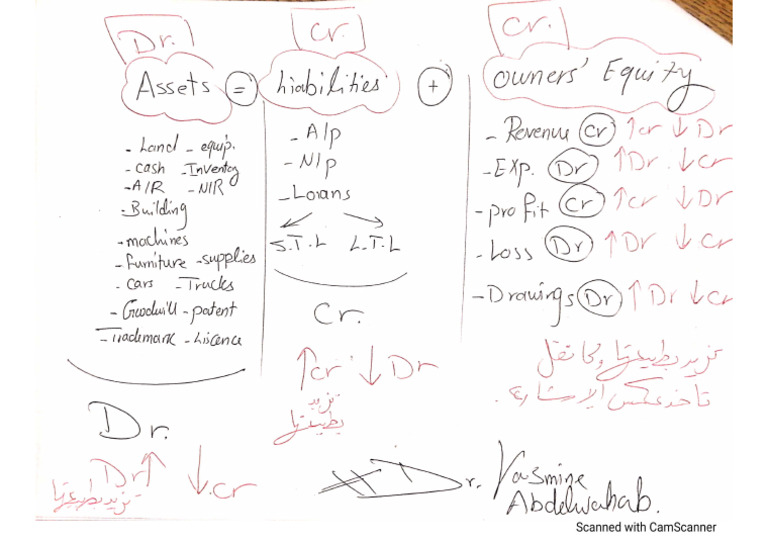 Dr.
Cr.
Cr.
Assets = Liabilities + Owners' Equity
- Land - equip.
- cash - Inventory
- A/R - N/R
- Building
- machines
- Furniture - supplies
- cars - Trucks
- Goodwill - patent
- Trademark - Liscence
Dr.
Dr ↑ ↓ cr
تزيد بطبيعتها
- A/p
- N/p
- Loans
S.T.L L.T.L
Cr.
↑ cr ↓ Dr
تزيد
بطبيعتها
- Revenue Cr ↑ cr ↓ Dr
- Exp. Dr ↑ Dr. ↓ cr
- profit Cr ↑ cr ↓ Dr
- Loss Dr ↑ Dr ↓ cr
- Drawings Dr ↑ Dr ↓ cr
تزيد بطبيعتها
تاخد عكس الإشارة.
Dr. Yasmine
Abdelwahab.
Scanned with CamScanner